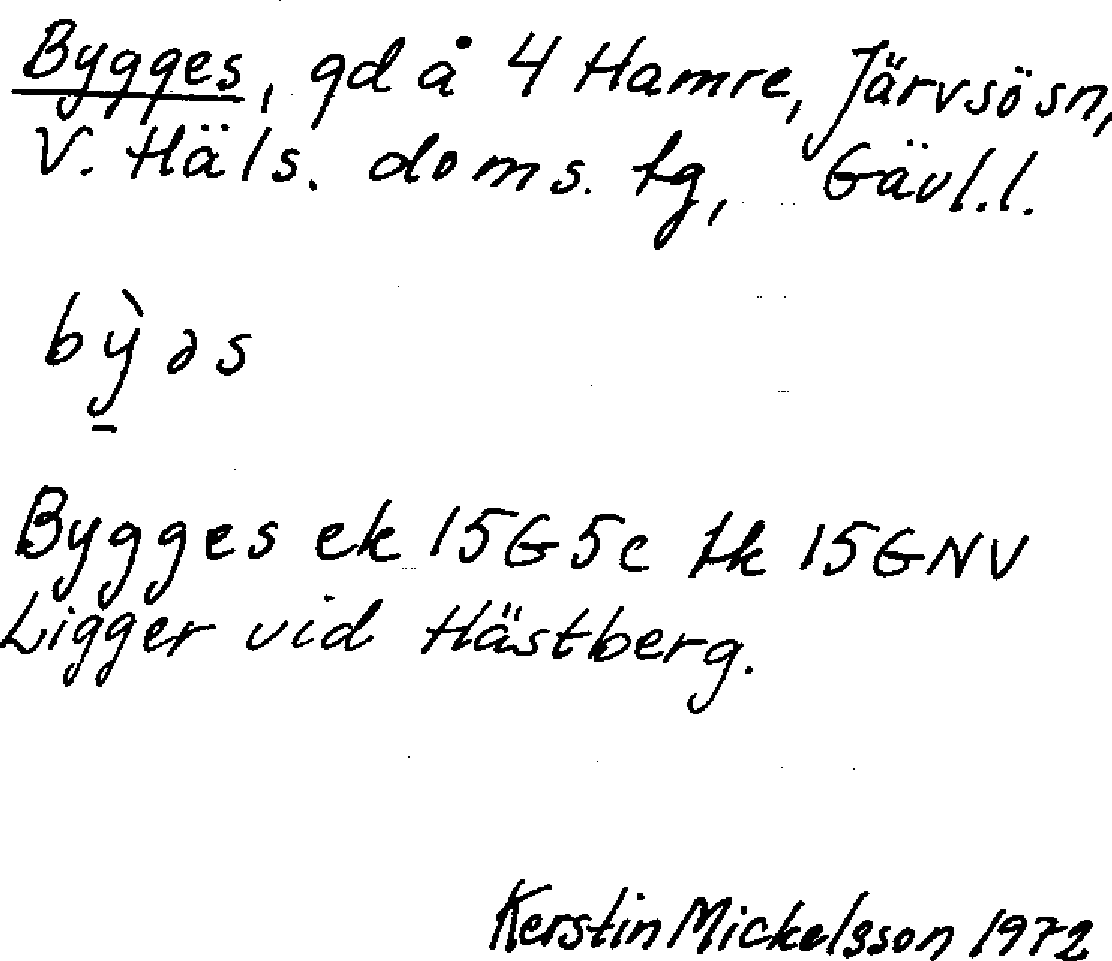 Bygges, gd å 4 Hamre, Järvsö sn,
V. Häls. doms. tg, Gävl. l.
bỳ̠əs
Bygges ek 15G5c tk 15GNV
Ligger vid Hästberg.
Kerstin Mickelsson 1972